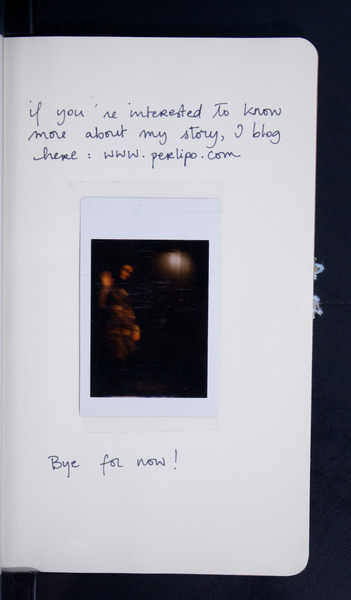 if you're interested to know
more about my story, I blog
here: www.perlipo.com
Bye for now!